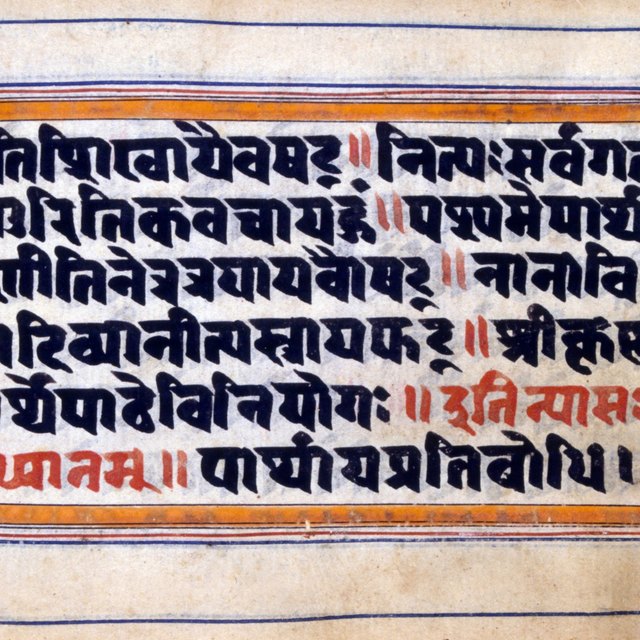 ति शिखायै वषट् ॥ नित्यः सर्वगत
रिति कवचाय हुं ॥ पश्य मे पार्थ
णीति नेत्रत्रयाय वौषट् ॥ नानावि
रि व्यानीत्यस्त्राय फट् ॥ श्रीकृष्ण
र्थे पाठे विनियोगः ॥ इति न्यासः
ध्यानम् ॥ पार्थाय प्रतिबोधि